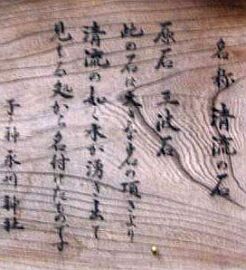 名称 清流の石
原石 三波石
此の石は大きな岩の頂きより
清流の如く水が湧き出て
見える処から名付けたものです
子神氷川神社